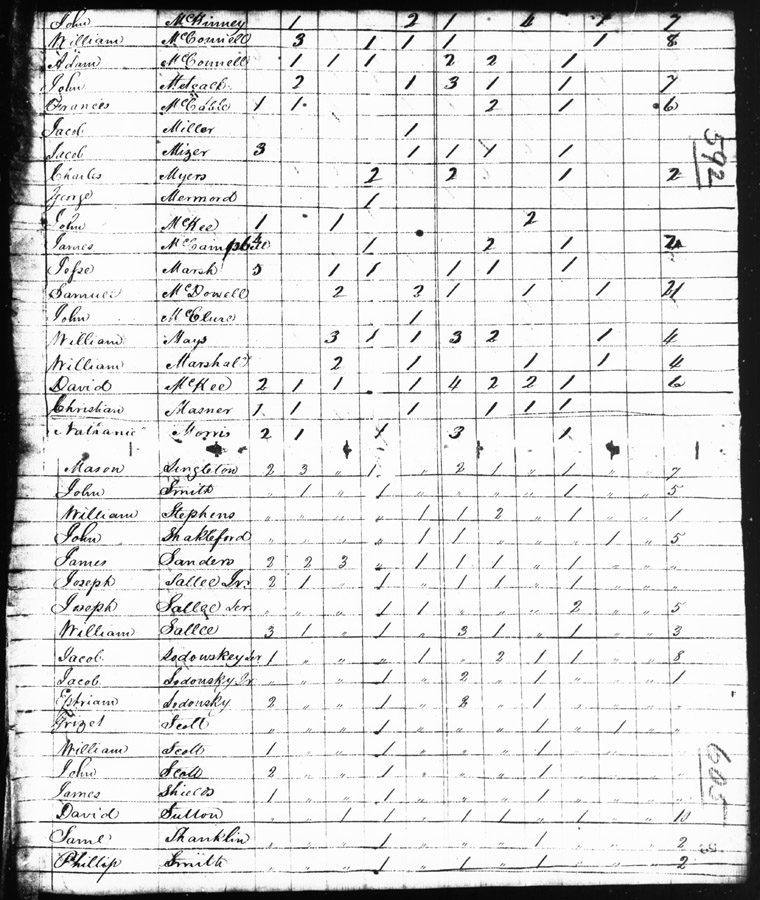 John McKinney 1 2 1 4 1 7
William McConnell 3 1 1 1 1 8
Adam McConnell 1 1 1 2 2 1
John Metcalf 2 1 3 1 1 7
Francis McCable 1 1 2 1 6
Jacob Miller 1
Jacob Mizer 3 1 1 1 1
Charles Myers 2 2 1 2
George Mermord 1
John McKee 1 1 2
James McCampbell 4 1 2 1
Jesse Marsh 3 1 1 1 1 1
Samuel McDowell 2 3 1 1 1 21
John McClure 1
William Mays 3 1 1 3 2 1 4
William Marshall 2 1 1 1 4
David McKee 2 1 1 1 4 2 2 1 6
Christian Masner 1 1 1 1 1 1
Nathaniel Morris 2 1 1 3 1
Mason Singleton 2 3 " 1 " 2 1 " 1 " " 7
John Smith " 1 " 1 " " " " 1 " " 5
William Stephens " " " " 1 1 2 " 1 1
John Shakleford " " " " 1 1 " " " 1 " 5
James Sanders 2 2 3 " 1 1 1 " 1 " " "
Joseph Sallee Jr. 2 1 " 1 " 1 1 " 1 " " "
Joseph Sallee Ser " " " 1 1 " " " 2 " " 5
William Sallee 3 1 " 1 " 3 1 " 1 " " 3
Jacob Sodowskey Ser 1 " " " 1 " 2 1 1 " " 8
Jacob Sodousky Jr " " " 1 " 2 " 1 " " " 1
Sodousky 2 " " 1 " " 1 " " "
Scott " " " 1 " " " 1 " 1 " "
William Scott 1 " " 1 " " " 1 " " "
John Scott 2 " " 1 " " " 1 " " "
James Shields 1 " " 1 " " " 1 " " "
David Sutton " " 1 1 " 1 1 " 1 " " 10
Saml Shanklin " " " 1 " " " 1 " " " 2
Phillip Smith " " " 1 " 1 " 1 " " " 2
592
603